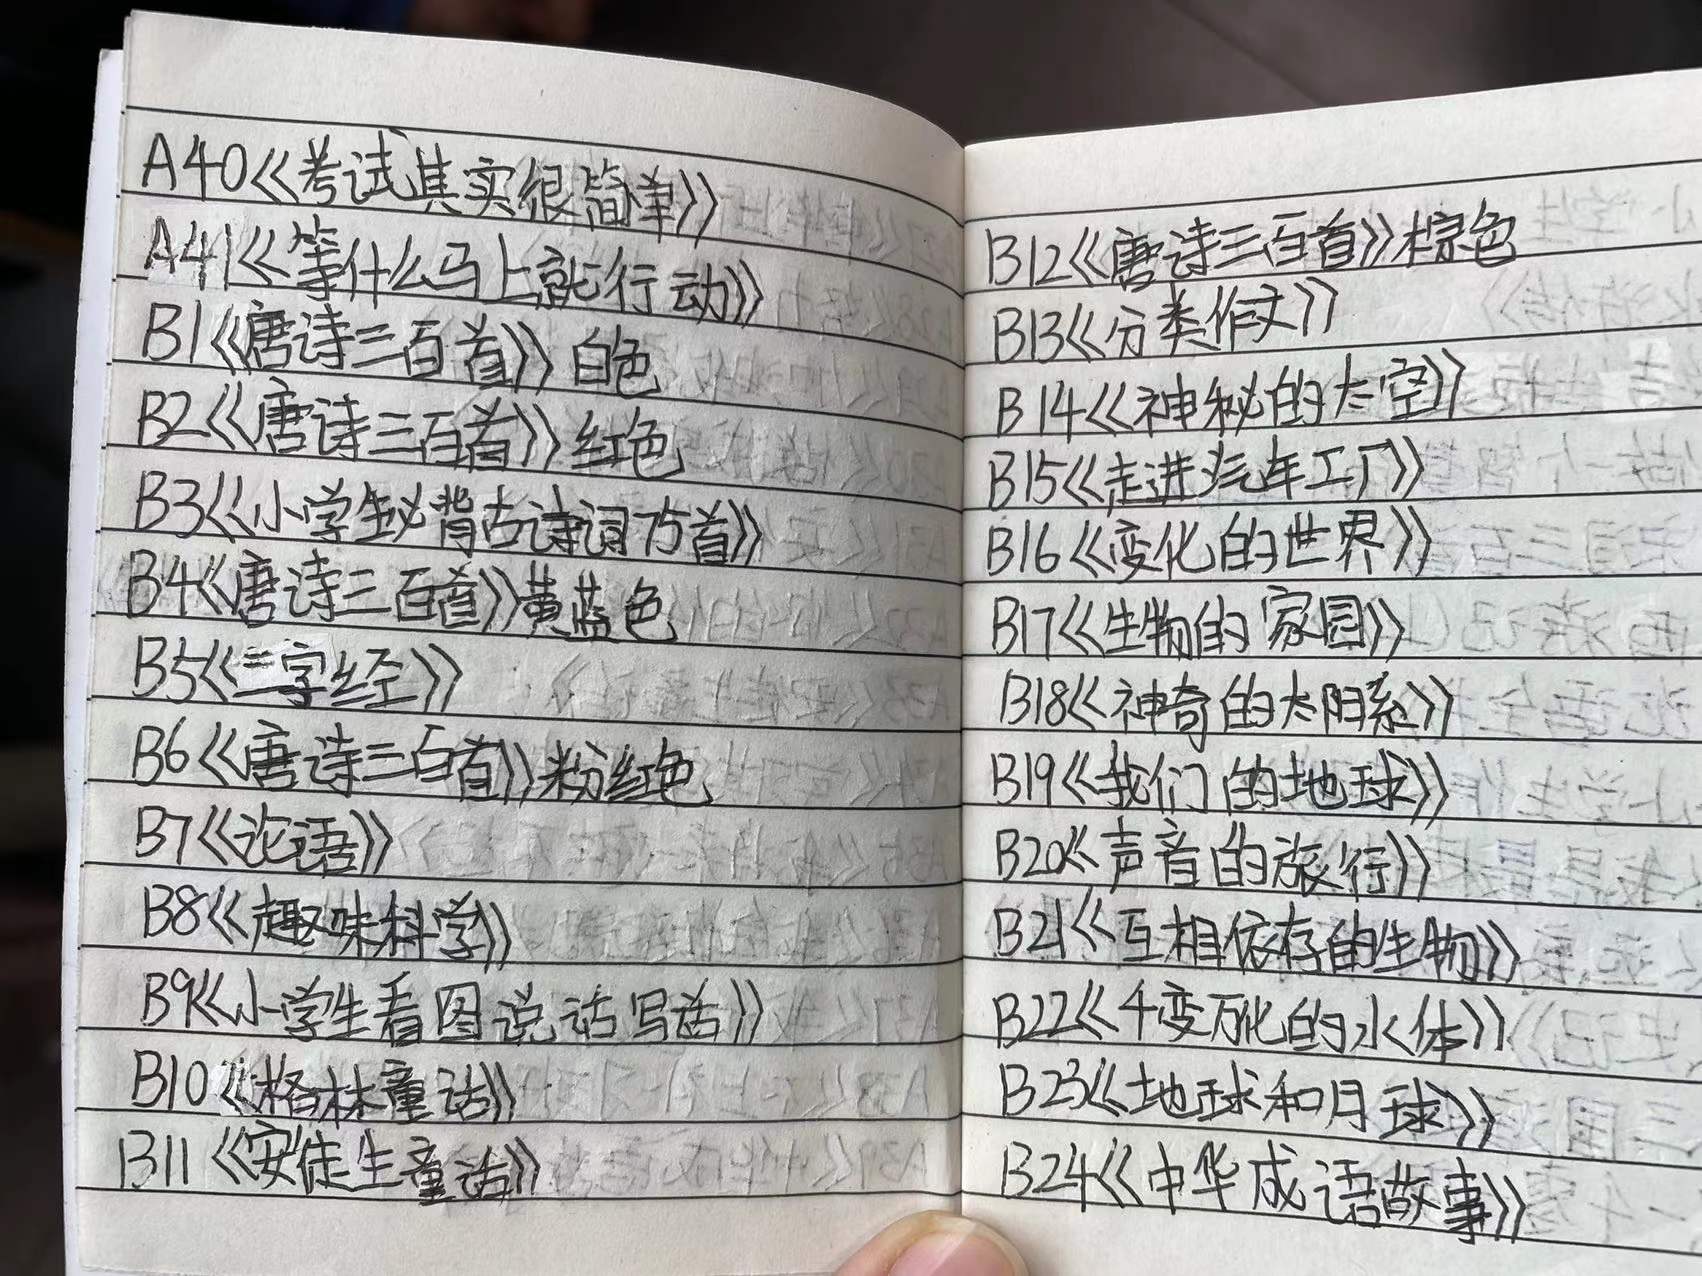 A40《考试其实很简单》
A41《等什么马上就行动》
B1《唐诗三百首》白色
B2《唐诗三百首》红色
B3《小学生必背古诗词75首》
B4《唐诗三百首》黄蓝色
B5《三字经》
B6《唐诗三百首》粉红色
B7《论语》
B8《趣味科学》
B9《小学生看图说话写话》
B10《格林童话》
B11《安徒生童话》
B12《唐诗三百首》棕色
B13《分类作文》
B14《神秘的太空》
B15《走进汽车工厂》
B16《变化的世界》
B17《生物的家园》
B18《神奇的太阳系》
B19《我们的地球》
B20《声音的旅行》
B21《互相依存的生物》
B22《千变万化的水体》
B23《地球和月球》
B24《中华成语故事》